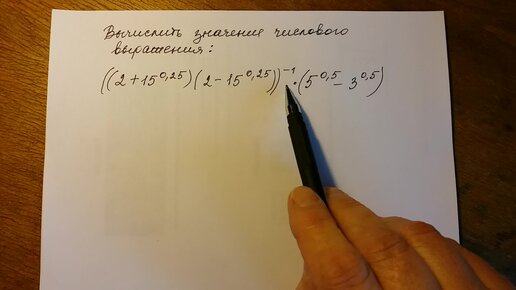 Вычислить значение числового
выражения:
((2 + 15^0,25)(2 - 15^0,25))^-1 · (5^0,5 - 3^0,5)